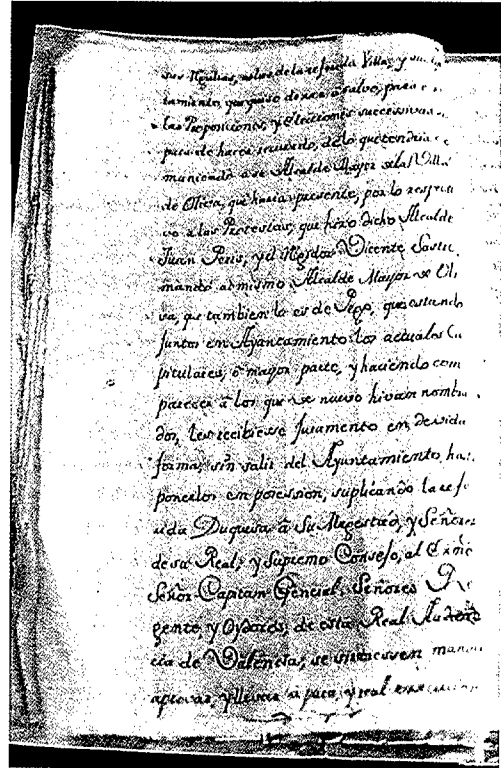 sus Regalias, as las de la referida Villa, y su
tamiento, que quiso dexar à salvo, para
las Proposiciones, y elecciones successivas
para de hacer incurrido, de lo que tendria
municado à su Alcalde Mayor de la Villa
de Oliva, que haria presente, por lo respecti
vo à las Protestas, que hizo dicho Alcalde
Juan Peris, y el Regidor Vicente
mando al mismo Alcalde Mayor de Oli
va, que tambien lo es de Pego, que estando
juntos en Ayuntamiento los actuales Ca
pitulares, ò mayor parte, y haciendo com
parecer à los que de nuevo hivan nombra
dos, les recibiese juramento en devida
forma, sin salir del Ayuntamiento, has
ponerlos en posession, suplicando la refe
rida Duquesa à Su Magestad, y Señores
de su Real, y Supremo Consejo, al Exmo
Señor Capitan General, Señores Re
gente, y Oydores, de esta Real Audien
cia de Valencia, se sirviessen mandar
aprovar, y llevar à pura, y real